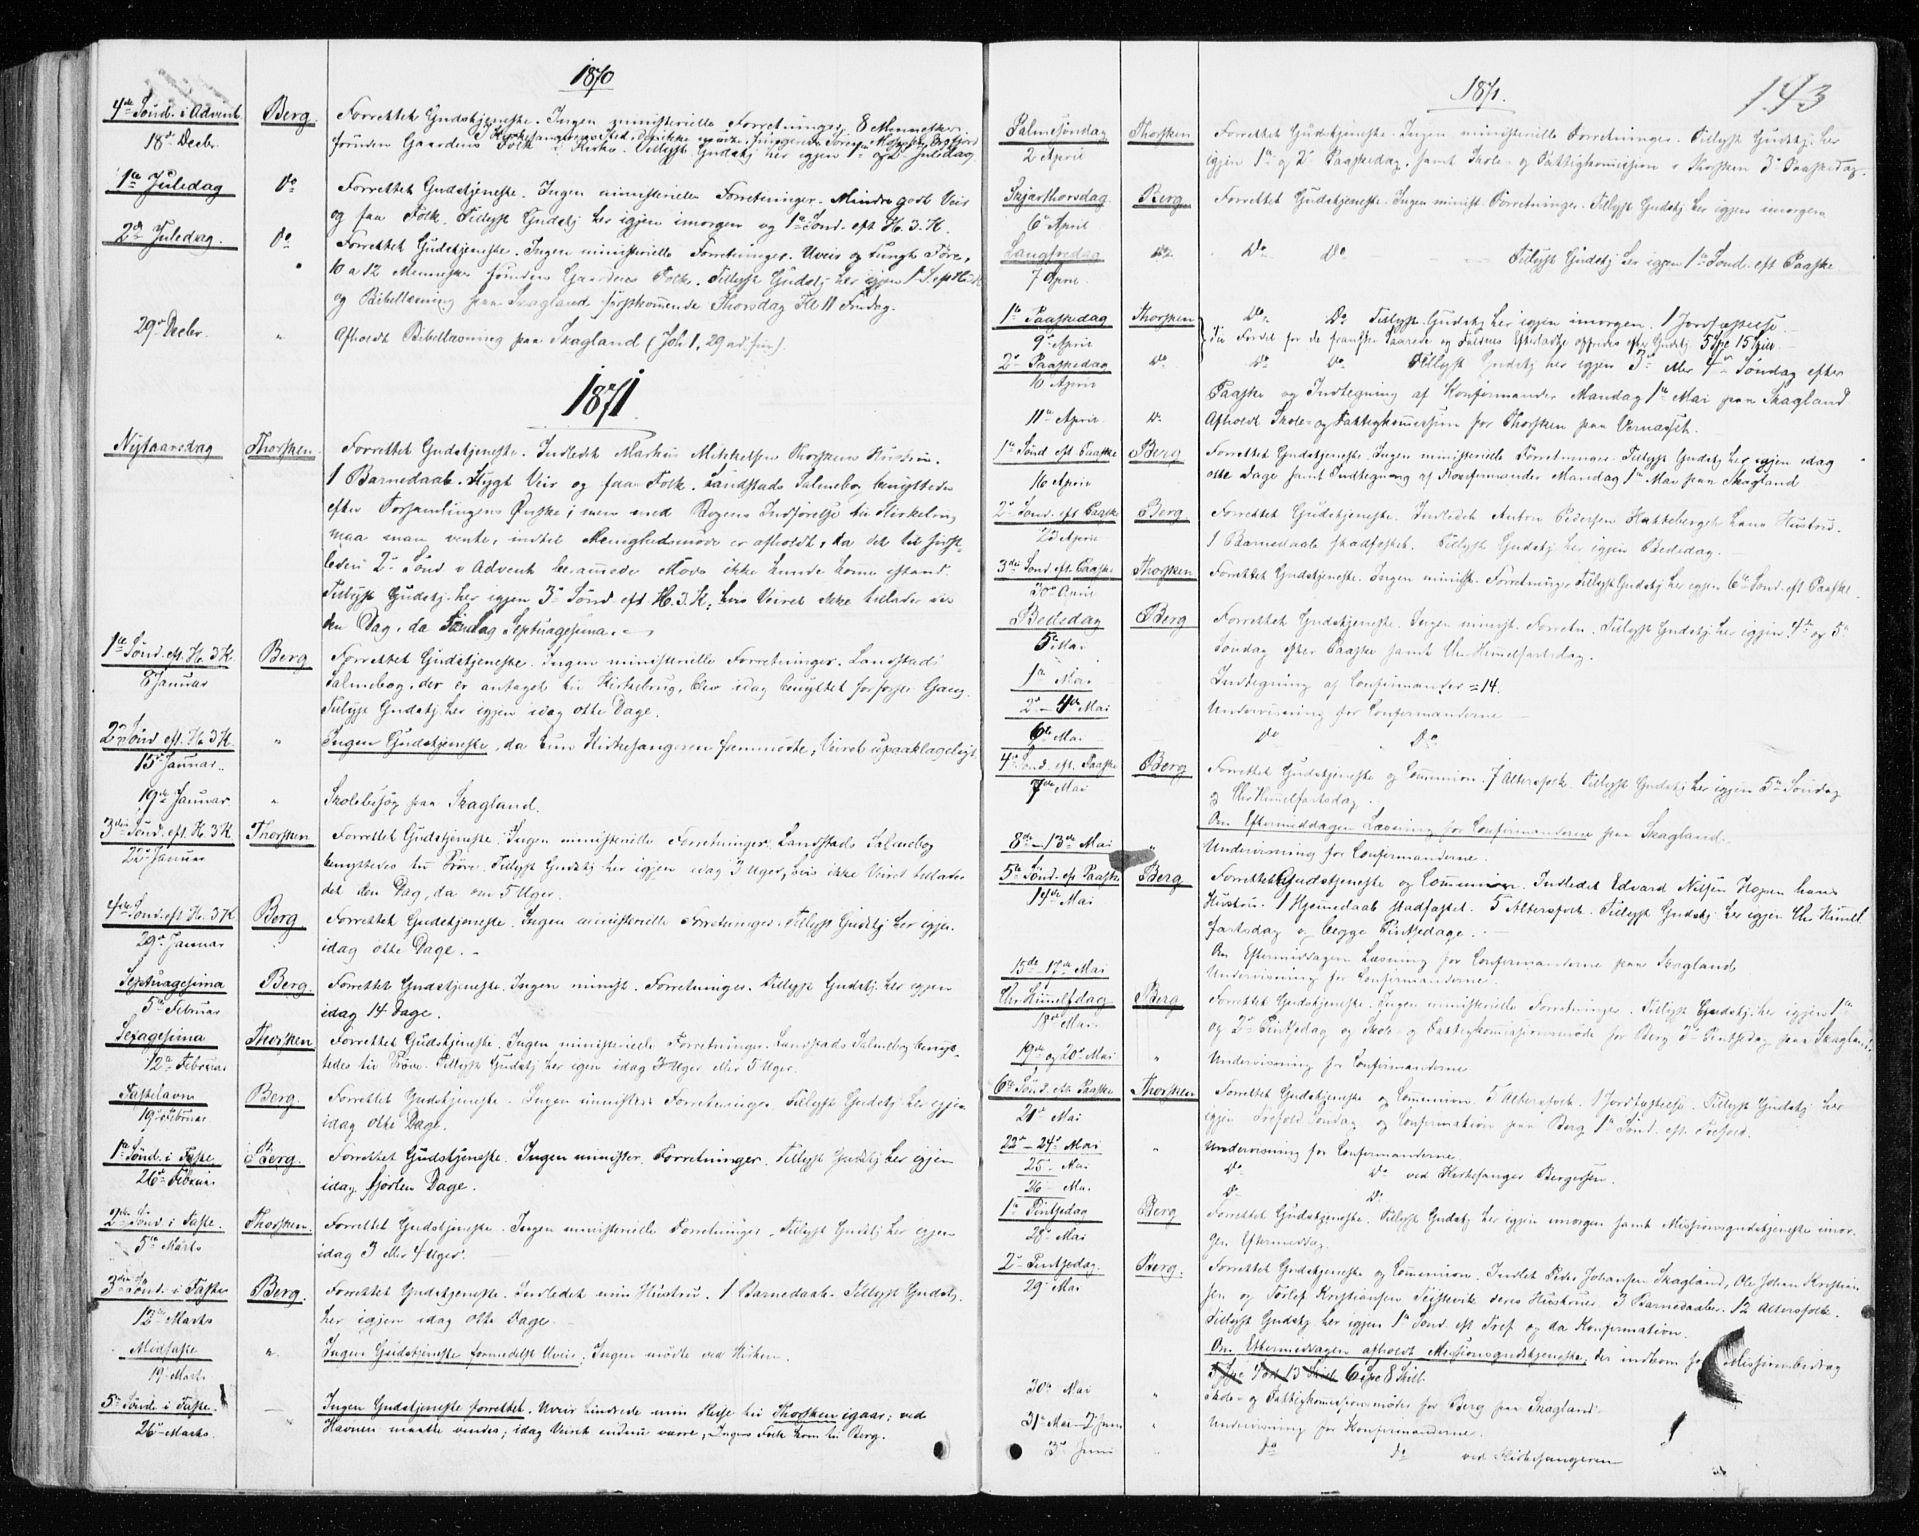 1870
4de Sönd. i Advent Berg. Forrettet Gudstjeneste. Ingen ministerielle Forretninger. 8 Mennesker
18de Decbr. foruden Gaardens Folk i Kirke. Tillyst Gudstj her igjen 1ste og 2den Juledag
1ste Juledag Do Forrettet Gudstjeneste. Ingen ministerielle Forretninger. Mindre godt Veir
og faa Folk. Tillyst Gudstj her igjen imorgen og 1ste Sönd. eft H. 3. K.
2den Juledag. Do Forrettet Gudstjeneste. Ingen ministerielle Forretninger. Uveir og tungt Före,
10 a 12 Mennesker foruden Gaardens Folk. Tillyst Gudstj her igjen 1 S. eft H 3 K
og Bibellæsning paa Skagland förstkommende Thorsdag Kl 11 Formdag.
29de Decbr. " Afholdt Bibellæsning paa Skagland (Joh 1, 29 ad fin).
1871.
Nytaarsdag Thorsken. Forrettet Gudstjeneste. Indledet Markus Mikkelsen Thorskens Hustru.
1 Barnedaab. Stygt Veir og faa Folk. Landstads Salmebog benyttedes
efter Forsamlingens Önske; men med Bogens Indförelse til Kirkebrug
maa man vente, indtil Menighedsmöde er afholdt, da det til först-
leden 2den Sönd i Advent berammede Möde ikke kunde komme istand.
Tillyst Gudstj. her igjen 3die Sönd eft H. 3. K, hvis Veiret ikke tillader det
den Dag, da Söndag Septuagesima.
1ste Sönd. eft. H. 3 K. Berg Forrettet Gudstjeneste. Ingen ministerielle Forretninger. Landstads
8 Januar Salmebog, der er antaget til Kirkebrug, blev idag benyttet for förste Gang.
Tillyst Gudstj her igjen idag otte Dage.
2den Sönd eft. H. 3 K. " Ingen Gudstjeneste, da kun Kirkesangeren fremmödte, Veiret upaaklageligt
15de Januar.
19de Januar. " Skolebesög paa Skagland.
3die Sönd. eft. H. 3 K. Thorsken Forrettet Gudstjeneste. Ingen ministerielle Forretninger. Landstads Salmebog
22de Januar benyttedes til Pröve. Tillyst Gudstj her igjen idag 3 Uger, hvis ikke Veiret tillader
det den Dag, da om 5 Uger.
4de Sönd. eft H. 3 K Berg. Forrettet Gudstjeneste. Ingen ministerielle Forretninger. Tillyst Gudstj her igjen
29de Januar idag otte Dage.
Septuagesima Berg. Forrettet Gudstjeneste. Ingen minist. Forretninger. Tillyst Gudstj. her igjen
5te Februar idag 14 Dage.
Sexagesima Thorsken Forrettet Gudstjeneste. Ingen ministerielle Forretninger. Landstads Salmebog benyt-
12te Februar tedes til Pröve. Tillyst Gudstj her igjen idag 3 Uger eller 5 Uger.
Fastelavn Berg. Forrettet Gudstjeneste. Ingen minister Forretninger. Tillyst Gudstj her igjen
19de Februar idag otte Dage.
1ste Sönd. i Faste Berg. Forrettet Gudstjeneste. Ingen minister. Forretninger. Tillyst Gudstj her igjen
26de Februar idag fjorten Dage.
2den Sönd i Faste. Thorsken. Forrettet Gudstjeneste. Ingen ministerielle Forretninger. Tillyst Gudstj her igjen
5te Marts idag 3 eller 4 Uger.
3die Sönd. i Faste Berg. Forrettet Gudstjeneste. Indledet min Hustru. 1 Barnedaab. Tillyst Gudstj.
12te Marts her igjen idag otte Dage.
Midfaste " Ingen Gudstjeneste formedelst Uveir; Ingen mödte ved Kirken.
19de Marts
5te Sönd i Faste. — Ingen Gudstjeneste forrettet. Uveir hindrede min Reise til Thorsken igaar; ved
26de Marts. Havnen maatte vendes; idag Veiret endnu værre, Ingen Folk kom til Berg.
1871. 143
Palmesöndag Thorsken Forrettet Gudstjeneste. Ingen ministerielle Forretninger. Tillyst Gudstj. her
2 April igjen 1ste og 2den Paaskedag. samt Skole- og Fattigkommission i Thorsken 3die Paaskedag.
Skjærthorsdag Berg. Forrettet Gudstjeneste. Ingen minist. Forretninger. Tillyst Gudstj her igjen imorgen
6te April
Langfredag Do Do Do Tillyst Gudstj her igjen 1ste Sönd. eft Paaske.
7de April
1ste Paaskedag Thorsken Do Do Tillyst Gudstj her igjen imorgen. 1 Jordfæstelse.
9de April Til Fordel for de franske Saarede og Faldnes Efterladte offredes efter Gudstj 5 Spe 15 Skill.
2den Paaskedag Do Do Do Tillyst Gudstj her igjen 3die eller 4de Söndag efter
10 April Paaske og Indtegning af Konfirmander Mandag 1ste Mai paa Skagland
11te April Do Afholdt Skole- og Fattigkommission for Thorsken paa
1ste Sönd eft Paaske Berg Forrettet Gudstjeneste. Ingen ministerielle Forretninger. Tillyst Gudstj her igjen idag
16 April otte Dage samt Indtegning af Konfirmander Mandag 1ste Mai paa Skagland
2den Sönd. eft Paaske Berg. Forrettet Gudstjeneste. Indledet Anton Pedersen Hattebergets Hustru.
23 April 1 Barnedaab stadfæstet. Tillyst Gudstj her igjen Bededag.
3die Sönd. eft. Paaske Thorsken Forrettet Gudstjeneste. Ingen minist. Forretninger. Tillyst Gudstj her igjen 6te Sönd. eft Paaske.
30te April
Bededag Berg Forrettet Gudstjeneste. Ingen minist. Forretn. Tillyst Gudstj her igjen 4de og 5te
5te Mai Söndag efter Paaske samt Chr Himmelfartsdag.
1ste Mai Indtegning af Confirmander = 14.
2den – 4de Mai Underviisning for Confirmanderne
6te Mai Do Do
4de Sönd. eft. Paaske Berg Forrettet Gudstjeneste og Communion. 7 Altersfolk. Tillyst Gudstj her igjen 5te Söndag
7de Mai og Chr Himmelfartsdag.
Om Eftermiddagen Læsning for Confirmanderne paa Skagland.
8de – 13de Mai " Underviisning for Confirmanderne.
5te Sönd. eft Paaske Berg Forrettet Gudstjeneste og Communion. Indledet Edvard Nilsen hans
14de Mai Hustru. 1 Hjemmedaab stadfæstet. 5 Altersfolk. Tillyst Gudstj. her igjen Chr Himmel
fartsdag og begge Pintsedage.
Om Eftermiddagen Læsning for Confirmanderne paa Skagland
15de – 17de Mai Underviisning for Confirmanderne.
Chr Himmelfdag Berg Forrettet Gudstjeneste. Ingen ministerielle Forretninger. Tillyst Gudstj her igjen 1ste
18de Mai og 2den Pintsedag og Skole- og Fattigkommissionsmöde for Berg 3die Pintsedag paa Skagland.
19de og 20de Mai " Underviisning for Confirmanderne
6te Sönd. eft Paaske Thorsken Forrettet Gudstjeneste og Communion. 5 Altersfolk. 1 Jordfæstelse. Tillyst Gudstj her
21de Mai igjen Trefold. Söndag og Confirmation paa Berg 1ste Sönd. eft. Trefold.
22de – 24de Mai " Underviisning for Confirmanderne.
25de Mai Do Do ved Kirkesanger Bergersen.
26de Mai Do Do
1ste Pintsedag Berg Forrettet Gudstjeneste. Tillyst Gudstj her igjen imorgen samt Missionsgudstjeneste imor-
28de Mai gen Eftermiddag.
2den Pintsedag. Berg. Forrettet Gudstjeneste og Communion. Indledet Peder Johansen Skagland, Ole Johan Kristian
29de Mai sen og Torlef Kristiansen deres Hustruer. 3 Barnedaaber. 12 Altersfolk.
Tillyst Gudstj her igjen 1ste Sönd. eft Tref og da Konfirmation.
Om Eftermiddagen afholdt Missionsgudstjeneste; der indkom for Missionsbidrag
6 Spe 8 Skill.
30te Mai " Skole- og Fattigkommissionsmöde for Berg paa Skagland.
31te Mai – 2 Juni " Underviisning for Konfirmanderne.
3die Juni " Do Do ved Kirkesangeren